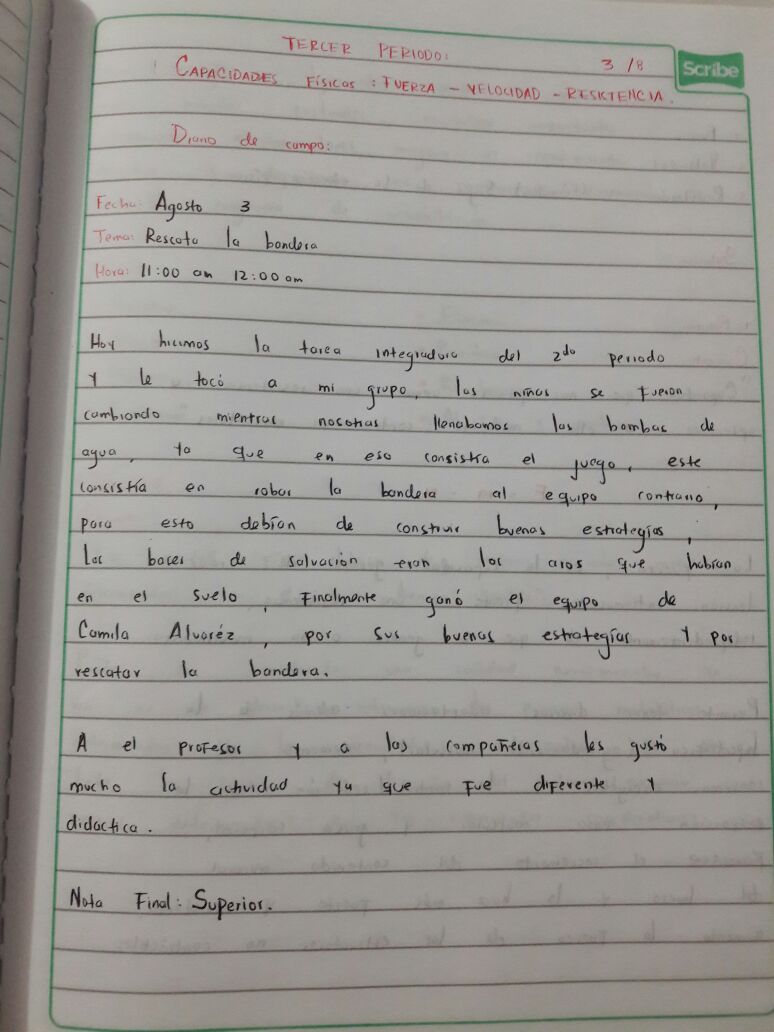 TERCER PERIODO:
3/8
Scribe
CAPACIDADES FÍSICAS: FUERZA - VELOCIDAD - RESISTENCIA.
Diario de campo:
Fecha: Agosto 3
Tema: Rescata la bandera
Hora: 11:00 am 12:00 am
Hoy hicimos la tarea integradora del 2do periodo
y le tocó a mi grupo, las niñas se fueron
cambiando mientras nosotras llenabamos las bombas de
agua, ya que en eso consistía el juego, este
consistía en robar la bandera al equipo contrario,
para esto debían de construir buenas estrategías,
las bases de salvación eran los aros que habían
en el suelo, Finalmente ganó el equipo de
Camila Alvaréz, por sus buenas estrategías y por
rescatar la bandera.
A el profesor y a las compañeras les gustó
mucho la actividad ya que fue diferente y
didactica.
Nota Final: Superior.